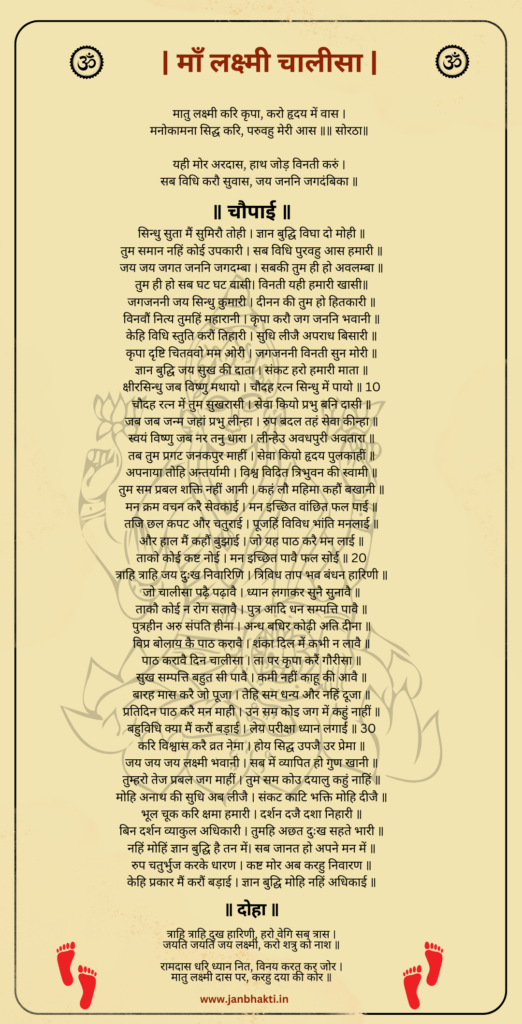 ॐ
| माँ लक्ष्मी चालीसा |
ॐ
मातु लक्ष्मी करि कृपा, करो हृदय में वास ।
मनोकामना सिद्ध करि, परुवहु मेरी आस ॥॥ सोरठा॥
यही मोर अरदास, हाथ जोड़ विनती करुं ।
सब विधि करौ सुवास, जय जननि जगदंबिका ॥
॥ चौपाई ॥
सिन्धु सुता मैं सुमिरौ तोही । ज्ञान बुद्धि विघा दो मोही ॥
तुम समान नहिं कोई उपकारी । सब विधि पुरवहु आस हमारी ॥
जय जय जगत जननि जगदम्बा । सबकी तुम ही हो अवलम्बा ॥
तुम ही हो सब घट घट वासी। विनती यही हमारी खासी॥
जगजननी जय सिन्धु कुमारी । दीनन की तुम हो हितकारी ॥
विनवौं नित्य तुमहिं महारानी । कृपा करौ जग जननि भवानी ॥
केहि विधि स्तुति करौं तिहारी । सुधि लीजै अपराध बिसारी ॥
कृपा दृष्टि चितववो मम ओरी । जगजननी विनती सुन मोरी ॥
ज्ञान बुद्धि जय सुख की दाता । संकट हरो हमारी माता ॥
क्षीरसिन्धु जब विष्णु मथायो । चौदह रत्न सिन्धु में पायो ॥ 10
चौदह रत्न में तुम सुखरासी । सेवा कियो प्रभु बनि दासी ॥
जब जब जन्म जहां प्रभु लीन्हा । रुप बदल तहं सेवा कीन्हा ॥
स्वयं विष्णु जब नर तनु धारा । लीन्हेउ अवधपुरी अवतारा ॥
तब तुम प्रगट जनकपुर माहीं । सेवा कियो हृदय पुलकाहीं ॥
अपनाया तोहि अन्तर्यामी । विश्व विदित त्रिभुवन की स्वामी ॥
तुम सम प्रबल शक्ति नहीं आनी । कहं लौ महिमा कहौं बखानी ॥
मन क्रम वचन करै सेवकाई । मन इच्छित वांछित फल पाई ॥
तजि छल कपट और चतुराई । पूजहिं विविध भांति मनलाई ॥
और हाल मैं कहौं बुझाई । जो यह पाठ करै मन लाई ॥
ताको कोई कष्ट नोई । मन इच्छित पावै फल सोई ॥ 20
त्राहि त्राहि जय दुःख निवारिणि । त्रिविध ताप भव बंधन हारिणी ॥
जो चालीसा पढ़ै पढ़ावै । ध्यान लगाकर सुनै सुनावै ॥
ताकौ कोई न रोग सतावै । पुत्र आदि धन सम्पत्ति पावै ॥
पुत्रहीन अरु संपति हीना । अन्ध बधिर कोढ़ी अति दीना ॥
विप्र बोलाय कै पाठ करावै । शंका दिल में कभी न लावै ॥
पाठ करावै दिन चालीसा । ता पर कृपा करैं गौरीसा ॥
सुख सम्पत्ति बहुत सी पावै । कमी नहीं काहू की आवै ॥
बारह मास करै जो पूजा । तेहि सम धन्य और नहिं दूजा ॥
प्रतिदिन पाठ करै मन माही । उन सम कोइ जग में कहुं नाहीं ॥
बहुविधि क्या मैं करौं बड़ाई । लेय परीक्षा ध्यान लगाई ॥ 30
करि विश्वास करै व्रत नेमा । होय सिद्ध उपजै उर प्रेमा ॥
जय जय जय लक्ष्मी भवानी । सब में व्यापित हो गुण खानी ॥
तुम्हरो तेज प्रबल जग माहीं । तुम सम कोउ दयालु कहुं नाहिं ॥
मोहि अनाथ की सुधि अब लीजै । संकट काटि भक्ति मोहि दीजै ॥
भूल चूक करि क्षमा हमारी । दर्शन दजै दशा निहारी ॥
बिन दर्शन व्याकुल अधिकारी । तुमहि अछत दुःख सहते भारी ॥
नहिं मोहिं ज्ञान बुद्धि है तन में। सब जानत हो अपने मन में ॥
रुप चतुर्भुज करके धारण । कष्ट मोर अब करहु निवारण ॥
केहि प्रकार मैं करौं बड़ाई । ज्ञान बुद्धि मोहि नहिं अधिकाई ॥
॥ दोहा ॥
त्राहि त्राहि दुख हारिणी, हरो वेगि सब त्रास ।
जयति जयति जय लक्ष्मी, करो शत्रु को नाश ॥
रामदास धरि ध्यान नित, विनय करत कर जोर ।
मातु लक्ष्मी दास पर, करहु दया की कोर ॥
www.janbhakti.in